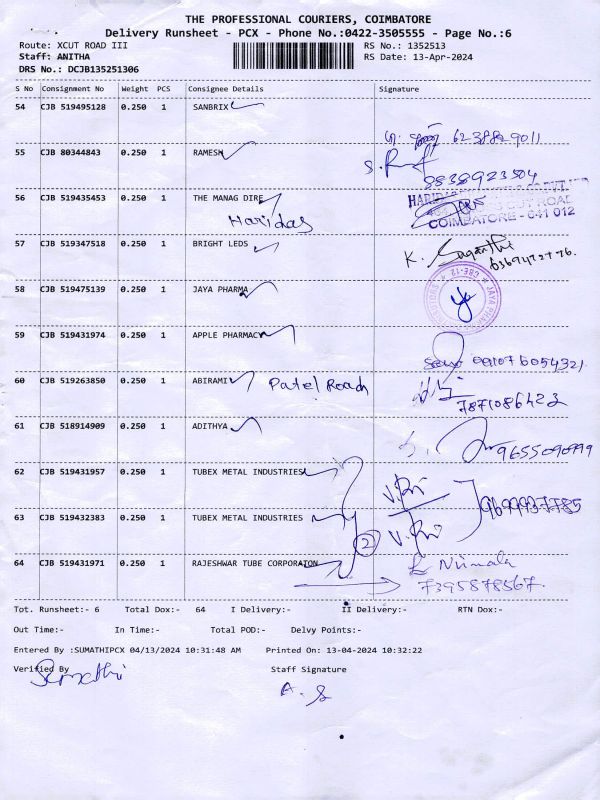 THE PROFESSIONAL COURIERS, COIMBATORE
Delivery Runsheet - PCX - Phone No.:0422-3505555 - Page No.:6
Route: XCUT ROAD III RS No.: 1352513
Staff: ANITHA RS Date: 13-Apr-2024
DRS No.: DCJB135251306
S No Consignment No Weight PCS Consignee Details Signature
54 CJB 519495128 0.250 1 SANBRIX
6238829011
55 CJB 80344843 0.250 1 RAMESH
8838923504
56 CJB 519435453 0.250 1 THE MANAG DIRE
Haridas
COIMBATORE - 641 012
57 CJB 519347518 0.250 1 BRIGHT LEDS
K. Suganthi
6369472776.
58 CJB 519475139 0.250 1 JAYA PHARMA
59 CJB 519431974 0.250 1 APPLE PHARMACY
60 CJB 519263850 0.250 1 ABIRAMI Patel Road
7871086422
61 CJB 518914909 0.250 1 ADITHYA
62 CJB 519431957 0.250 1 TUBEX METAL INDUSTRIES
9699937785
63 CJB 519432383 0.250 1 TUBEX METAL INDUSTRIES
2
64 CJB 519431971 0.250 1 RAJESHWAR TUBE CORPORATON
Nirmala
7395878567.
Tot. Runsheet:- 6 Total Dox:- 64 I Delivery:- II Delivery:- RTN Dox:-
Out Time:- In Time:- Total POD:- Delvy Points:-
Entered By :SUMATHIPCX 04/13/2024 10:31:48 AM Printed On: 13-04-2024 10:32:22
Verified By Staff Signature
Sumathi
A. S